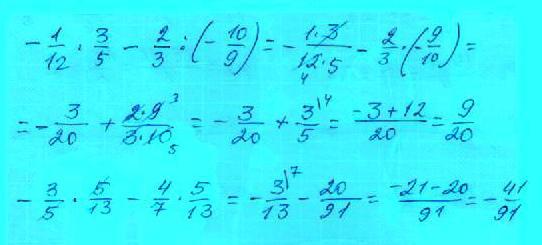 - 1/12 · 3/5 - 2/3 : (- 10/9) = - 1·3/12·5 4 - 2/3 · (- 9/10) =
= - 3/20 + 2·9 3/3·10 5 = - 3/20 + 3|4/5 = -3+12/20 = 9/20
- 3/5 · 5/13 - 4/7 · 5/13 = - 3|7/13 - 20/91 = -21-20/91 = - 41/91